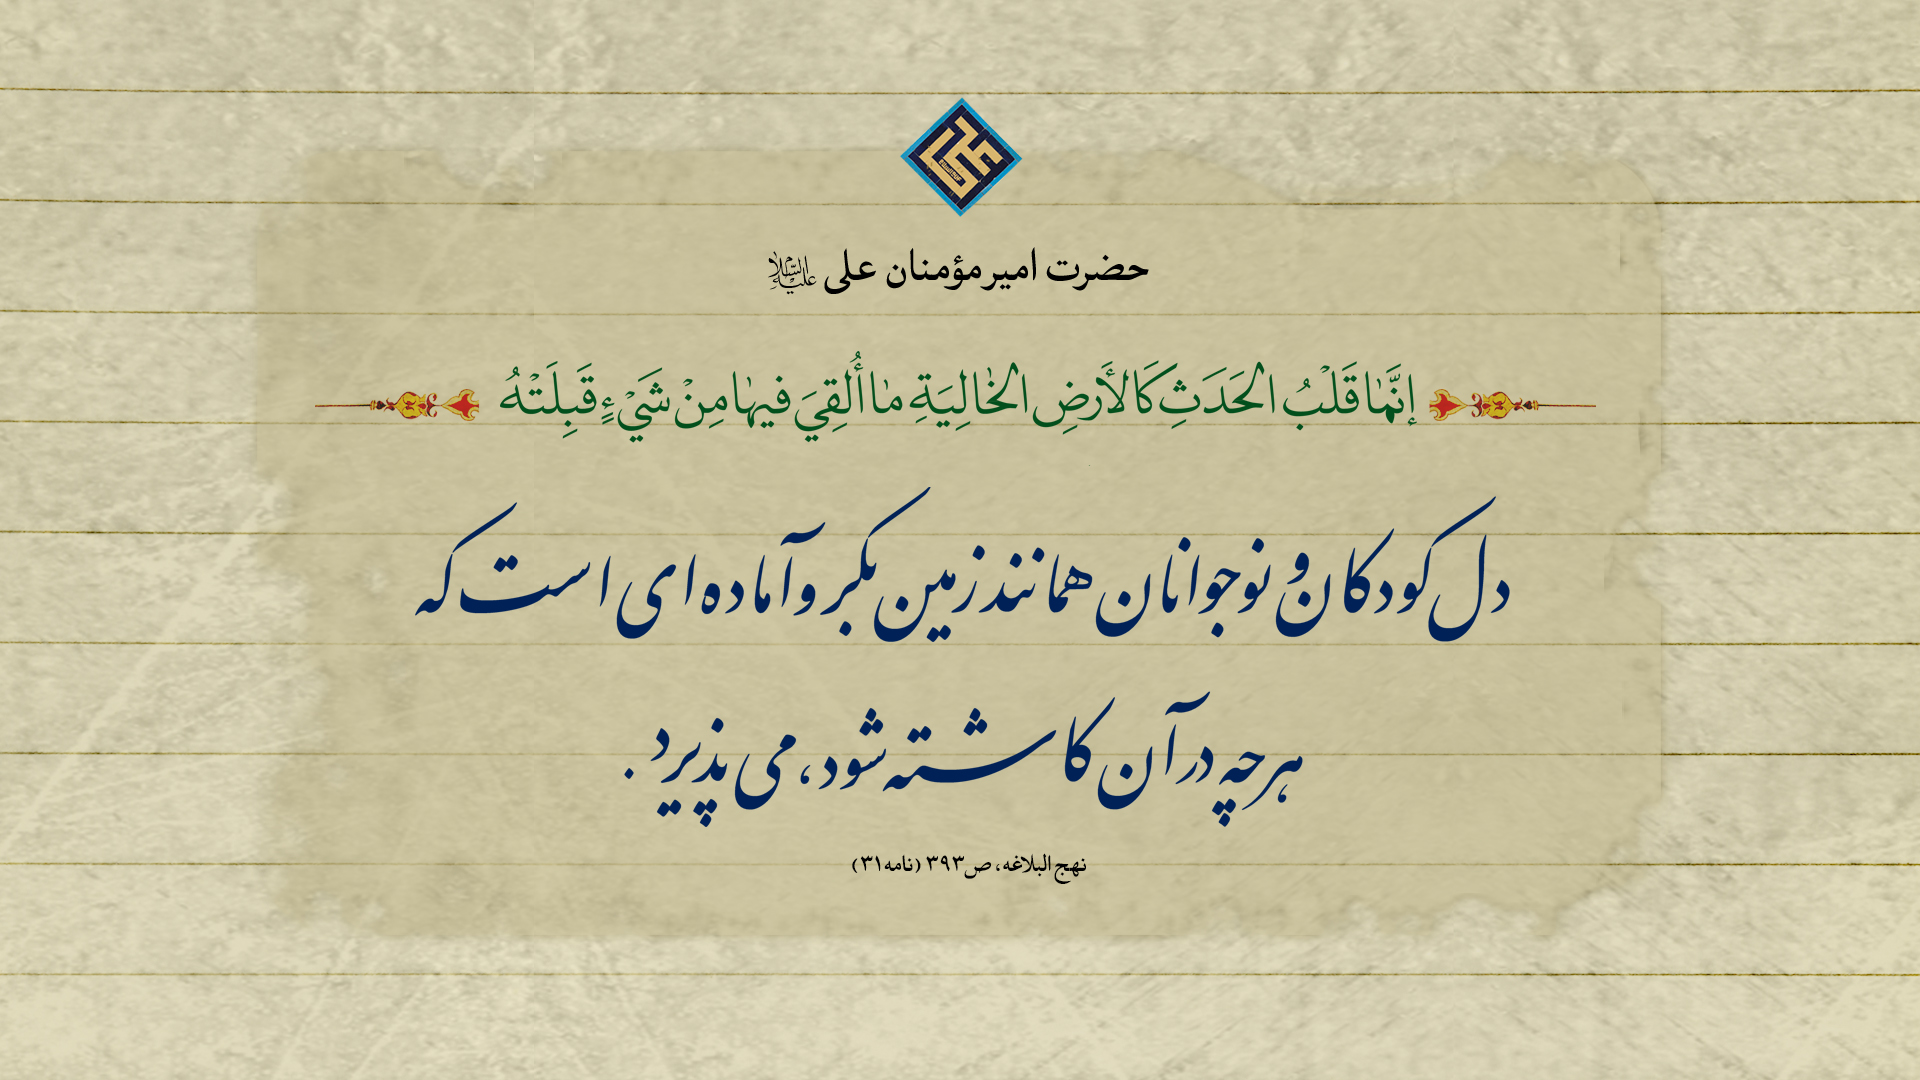 حضرت امیرمؤمنان علی علیه‌السلام
إنَّمٰا قَلْبُ الحَدَثِ كَالأَرضِ الخٰالِيَةِ مٰا أُلقِيَ فيهٰا مِنْ شَيْءٍ قَبِلَتْهُ
دل کودکان و نوجوانان همانند زمین بکر و آماده ای است که
هرچه در آن کاشته شود، می پذیرد.
نهج البلاغه، ص۳۹۳ (نامه۳۱)